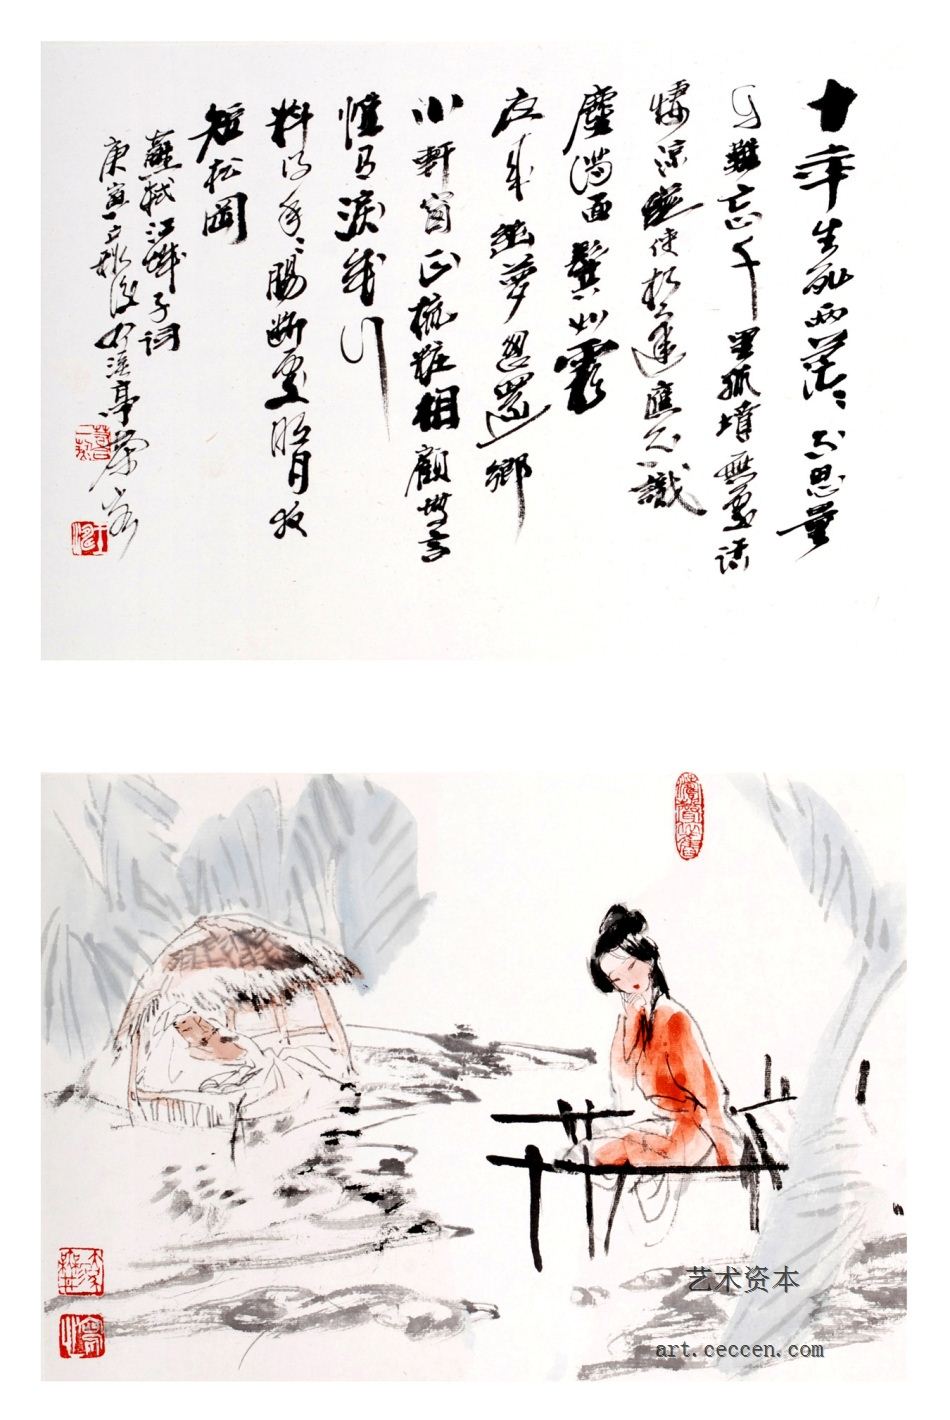 十年生死兩茫々不思量
自難忘千里孤墳無處話
悽涼縱使相逢應不識
塵滿面鬢如霜
夜來幽夢忽還鄉
小軒窗正梳粧相顧無言
惟有淚千行
料得年々腸斷處明月夜
短松岡
蘇軾江城子詞
庚寅立秋後於亭
艺术资本
art.ceccen.com